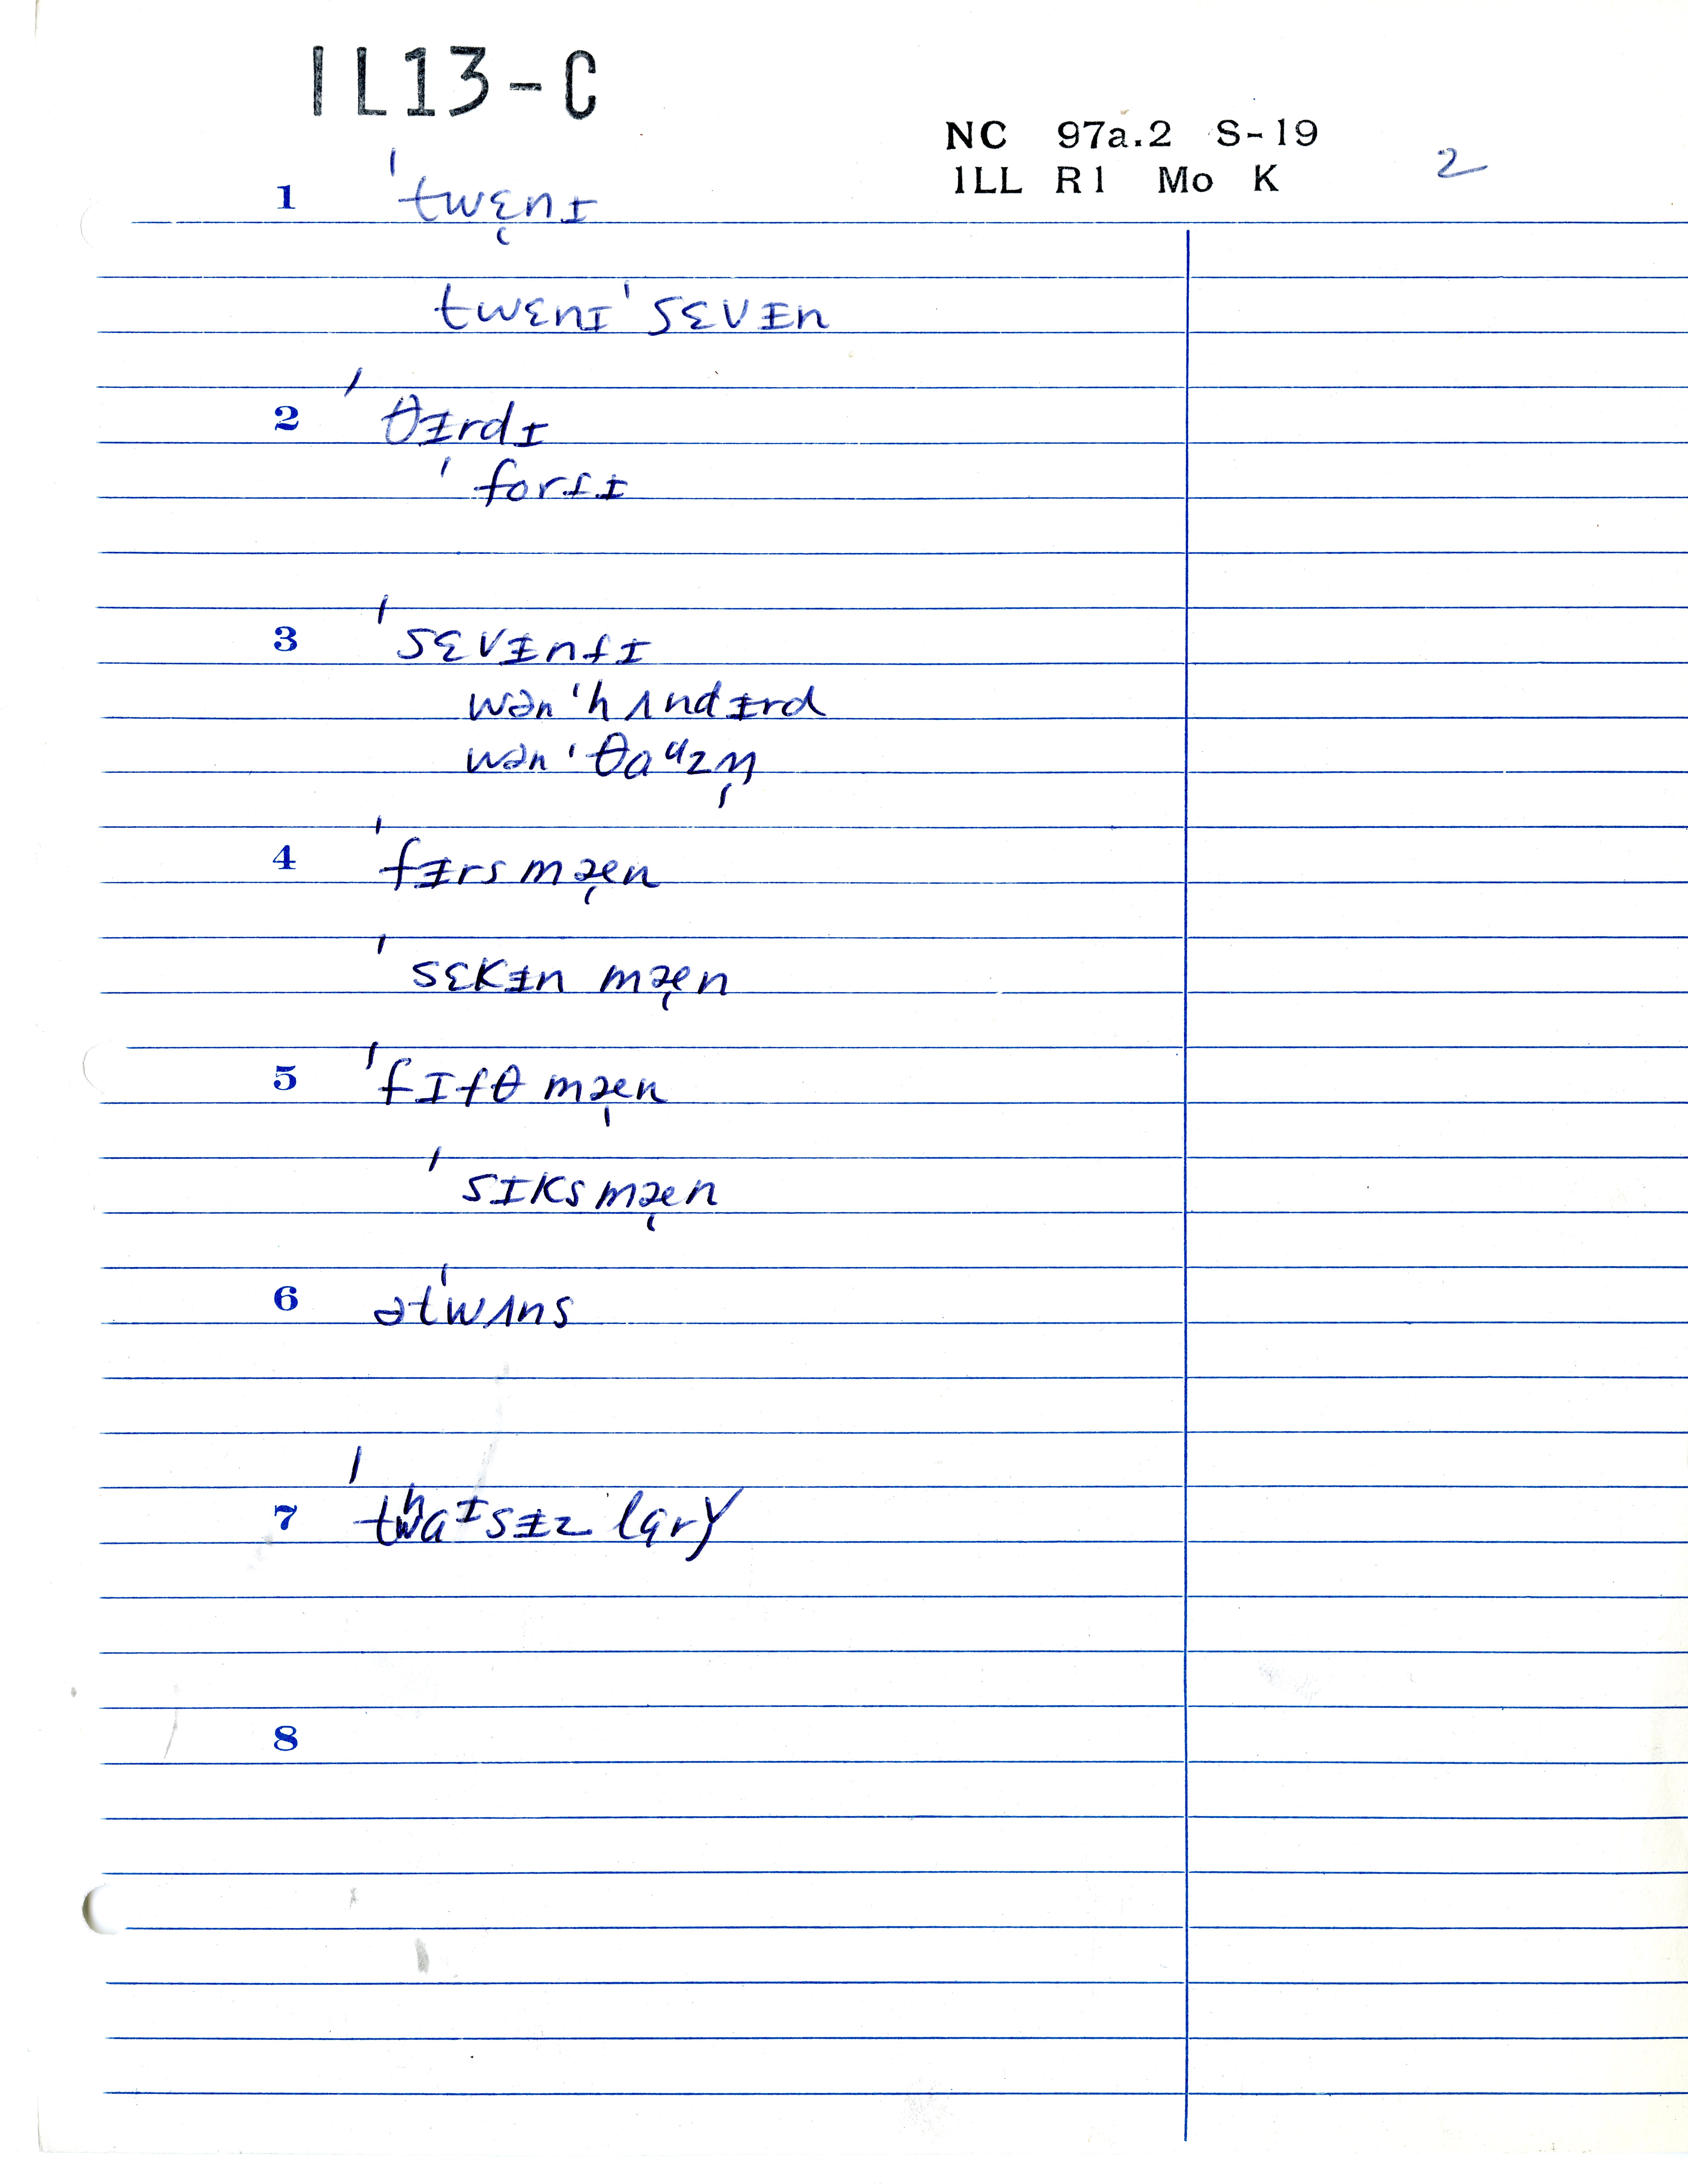 IL13-C
NC 97a.2 S-19
ILL R1 Mo K 2
1 ˈtwɛ̜nɪ
twɛnɪˈsɛvɪn
2 ˈθɪ̵rdɪ
ˈfortɪ
3 ˈsɛvɪ̵ntɪ
wənˈhʌndɪ̵rd
wənˈθaᵘzn̩
4 ˈfɪ̵rs mæ̜n
ˈsɛkɪ̵n mæ̜n
5 ˈfɪfθ mæ̩n
ˈsɪks mæ̜n
6 əˈtwʌns
7 ˈtʰwaᶦsɪ̵z
8